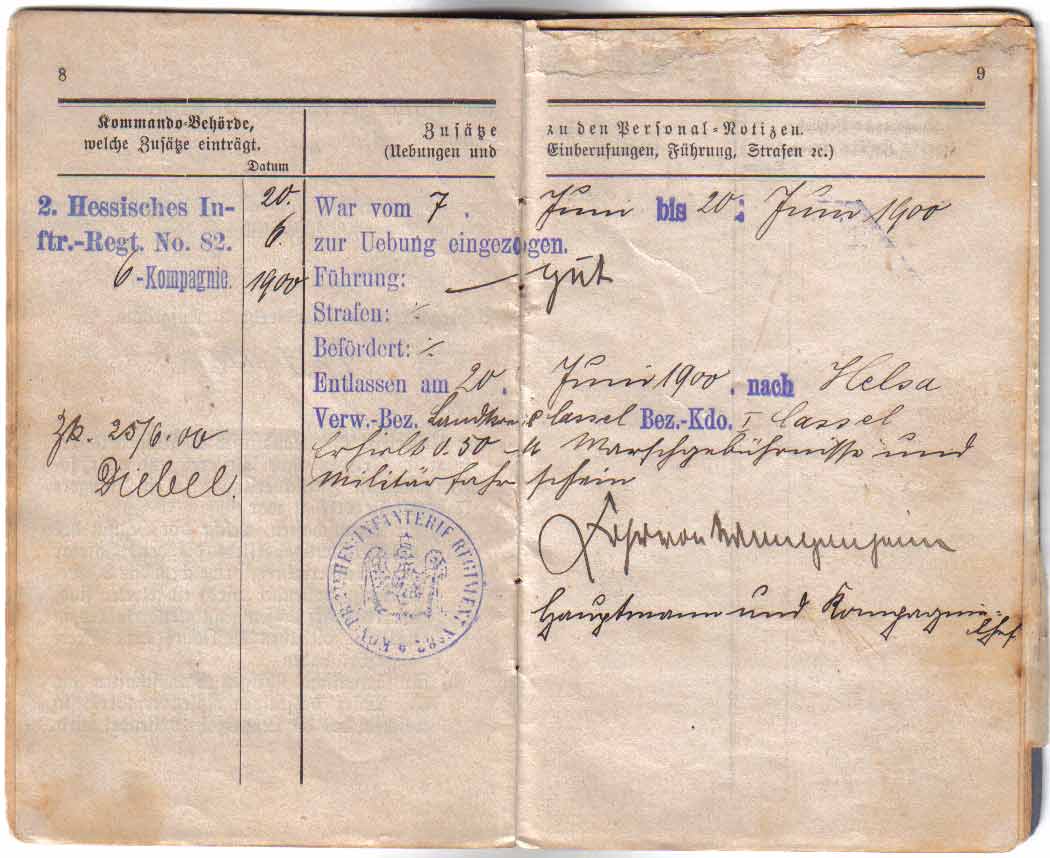 8
9
Kommando-Behörde,
welche Zusätze einträgt.
Datum
Zusätze zu den Personal-Notizen.
(Uebungen und Einberufungen, Führung, Strafen ꝛc.)
2. Hessisches In-
ftr.-Regt. No. 82.
6 -Kompagnie.
20.
6.
1900
War vom 7. Juni bis 20. Juni 1900
zur Uebung eingezogen.
Führung: gut
Strafen: ∕.
Befördert: ∕.
Entlassen am 20. Juni 1900. nach Helsa
Verw.-Bez. Landkreis Cassel Bez.-Kdo. I Cassel
Erhielt 0.50 M Marschgebührnisse und
Militärfahrschein
25/6.00
Diebel.
KÖN. PR. 2TES HES. INFANTERIE REGIMENT No 82
Hauptmann und Kompagnie-
chef